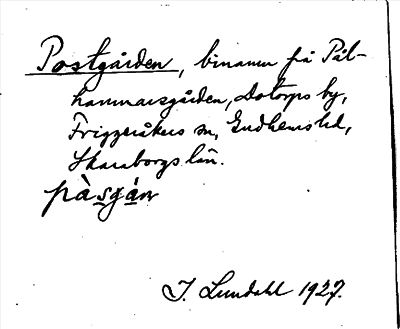 Postgården, binamn på Pål-
hammarsgården, Dotorps by,
Friggeråkers sn, Gudhems hd,
Skaraborgs län.
pàsgán
I. Lundahl 1927.